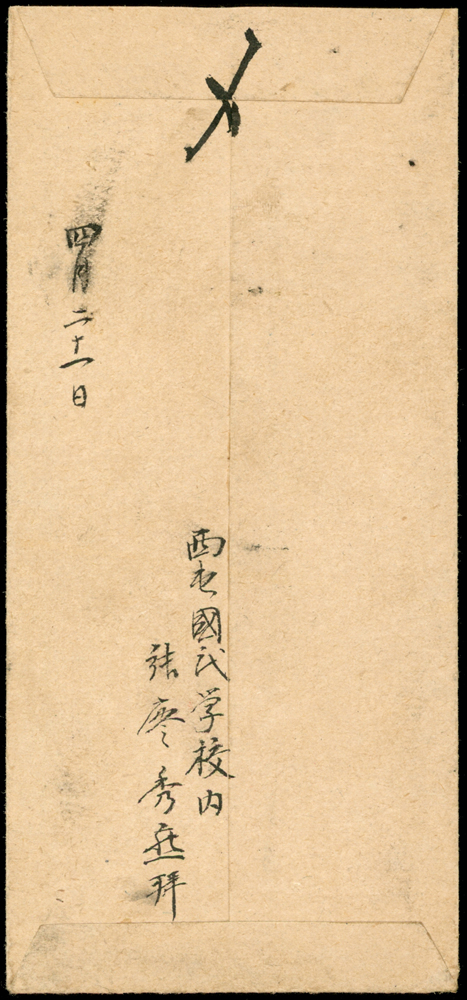 〆
西屯國民学校内
張廖秀拜
四月二十一日